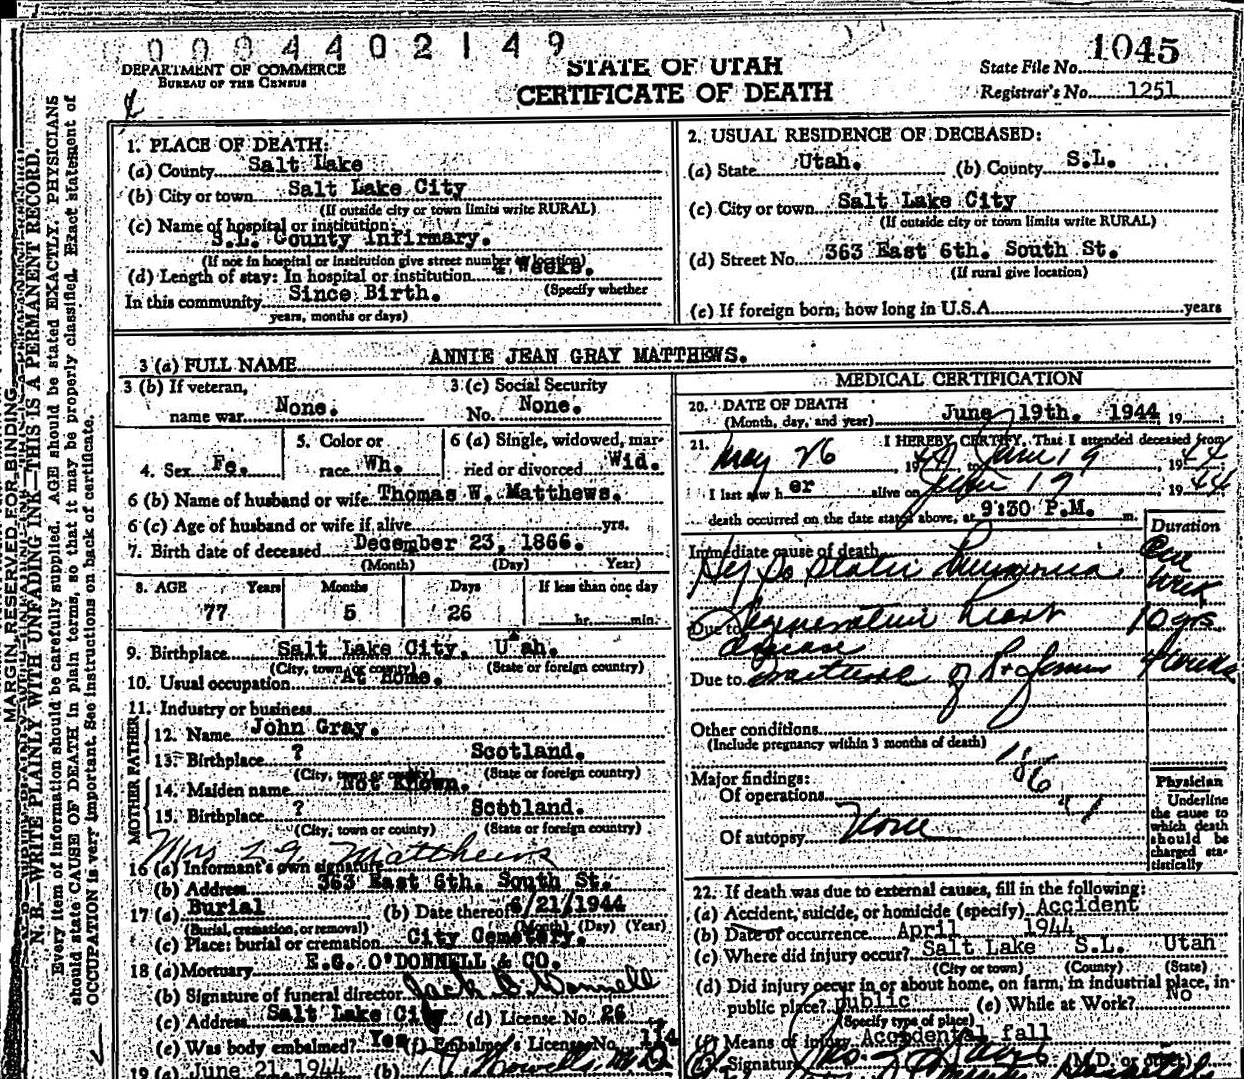 0004402149
DEPARTMENT OF COMMERCE
BUREAU OF THE CENSUS
STATE OF UTAH
CERTIFICATE OF DEATH
State File No. 1045
Registrar's No. 1251
MARGIN RESERVED FOR BINDING
N. B.—WRITE PLAINLY WITH UNFADING INK—THIS IS A PERMANENT RECORD.
Every item of information should be carefully supplied. AGE should be stated EXACTLY. PHYSICIANS
should state CAUSE OF DEATH in plain terms, so that it may be properly classified. Exact statement of
OCCUPATION is very important. See instructions on back of certificate.
1. PLACE OF DEATH:
(a) County Salt Lake
(b) City or town Salt Lake City
(If outside city or town limits write RURAL)
(c) Name of hospital or institution:
S.L. County Infirmary.
(If not in hospital or institution give street number or location)
(d) Length of stay: In hospital or institution 4 Weeks.
(Specify whether
In this community Since Birth.
years, months or days)
2. USUAL RESIDENCE OF DECEASED:
(a) State Utah. (b) County S.L.
(c) City or town Salt Lake City
(If outside city or town limits write RURAL)
(d) Street No. 363 East 6th. South St.
(If rural give location)
(e) If foreign born, how long in U.S.A. years
3 (a) FULL NAME ANNIE JEAN GRAY MATTHEWS.
3 (b) If veteran, name war None.
3 (c) Social Security No. None.
4. Sex Fe.
5. Color or race Wh.
6 (a) Single, widowed, married or divorced Wid.
6 (b) Name of husband or wife Thomas W. Matthews.
6 (c) Age of husband or wife if alive yrs.
7. Birth date of deceased December 23, 1866.
(Month) (Day) Year)
8. AGE Years Months Days If less than one day
77 5 26 hr. min.
9. Birthplace Salt Lake City, Utah.
(City, town, or county) (State or foreign country)
10. Usual occupation At Home.
11. Industry or business
FATHER
12. Name John Gray.
13. Birthplace ? Scotland.
(City, town or county) (State or foreign country)
MOTHER
14. Maiden name Not Known.
15. Birthplace ? Scotland.
(City, town or county) (State or foreign country)
16 (a) Informant's own signature Mrs T G Matthews
(b) Address 363 East 6th. South St.
17 (a) Burial (b) Date thereof 6/21/1944
(Burial, cremation, or removal) (Month) (Day) (Year)
(c) Place: burial or cremation City Cemetery.
18 (a) Mortuary E.G. O'DONNELL & CO.
(b) Signature of funeral director Jack O'Donnell
(c) Address Salt Lake City (d) License No. 26
(e) Was body embalmed? Yes (f) Embalmer's License No. 174
19 (a) June 21, 1944 (b)
MEDICAL CERTIFICATION
20. DATE OF DEATH
(Month, day, and year) June 19th. 1944, 19
21. I HEREBY CERTIFY, That I attended deceased from
May 26, 1944, to June 19, 1944
I last saw her alive on June 19, 1944
death occurred on the date stated above, at 9:30 P.M. m.
Duration
Immediate cause of death
Hypostatic Pneumonia One week
Due to Degenerative heart disease 10 yrs
Due to Fracture of Rt femur 4 weeks
Other conditions
(Include pregnancy within 3 months of death)
186
Major findings:
Of operations
Of autopsy None
Physician
Underline
the cause to
which death
should be
charged sta-
tistically
22. If death was due to external causes, fill in the following:
(a) Accident, suicide, or homicide (specify) Accident
(b) Date of occurrence April 1944
(c) Where did injury occur? Salt Lake S.L. Utah
(City or town) (County) (State)
(d) Did injury occur in or about home, on farm, in industrial place, in
public place? public (e) While at Work? No
(Specify type of place)
(f) Means of injury Accidental fall
Signature (M.D. or other)